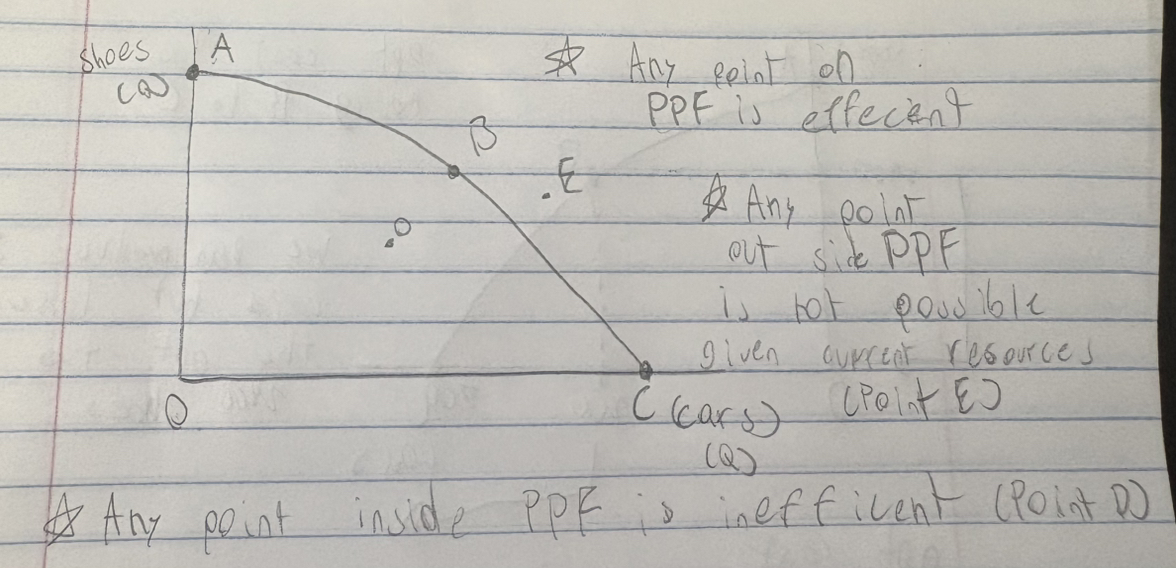 shoes
(Q)
A
B
.E
.D
O
C (cars)
(Q)
☆ Any point on
PPF is effecent
☆ Any point
out side PPF
is not possible
given current resources
(Point E)
☆ Any point inside PPF is inefficent (Point D)